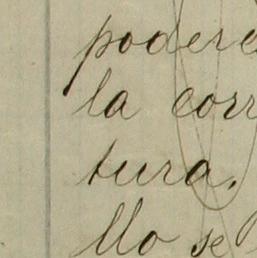 podere
la corr
tura.
llo se